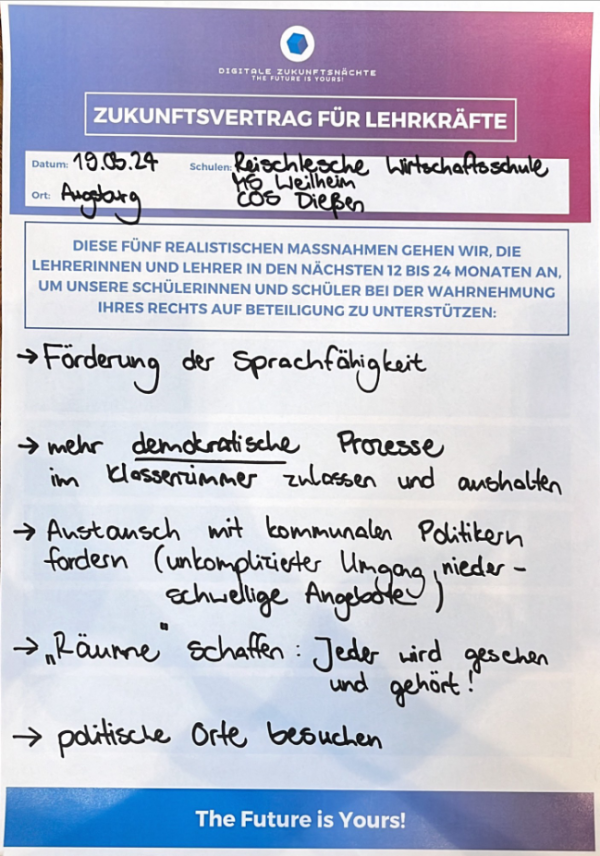 DIGITALE ZUKUNFTSNÄCHTE
THE FUTURE IS YOURS!
ZUKUNFTSVERTRAG FÜR LEHRKRÄFTE
Datum: 19.05.24 Schulen: Reischlesche Wirtschaftsschule
MS Weilheim
Ort: Augsburg COS Dießen
DIESE FÜNF REALISTISCHEN MASSNAHMEN GEHEN WIR, DIE
LEHRERINNEN UND LEHRER IN DEN NÄCHSTEN 12 BIS 24 MONATEN AN,
UM UNSERE SCHÜLERINNEN UND SCHÜLER BEI DER WAHRNEHMUNG
IHRES RECHTS AUF BETEILIGUNG ZU UNTERSTÜTZEN:
→ Förderung der Sprachfähigkeit
→ mehr demokratische Prozesse
im Klassenzimmer zulassen und aushalten
→ Austausch mit kommunalen Politikern
fordern (unkomplizierter Umgang, nieder-
schwellige Angebote)
→ „Räume" schaffen: Jeder wird gesehen
und gehört!
→ politische Orte besuchen
The Future is Yours!